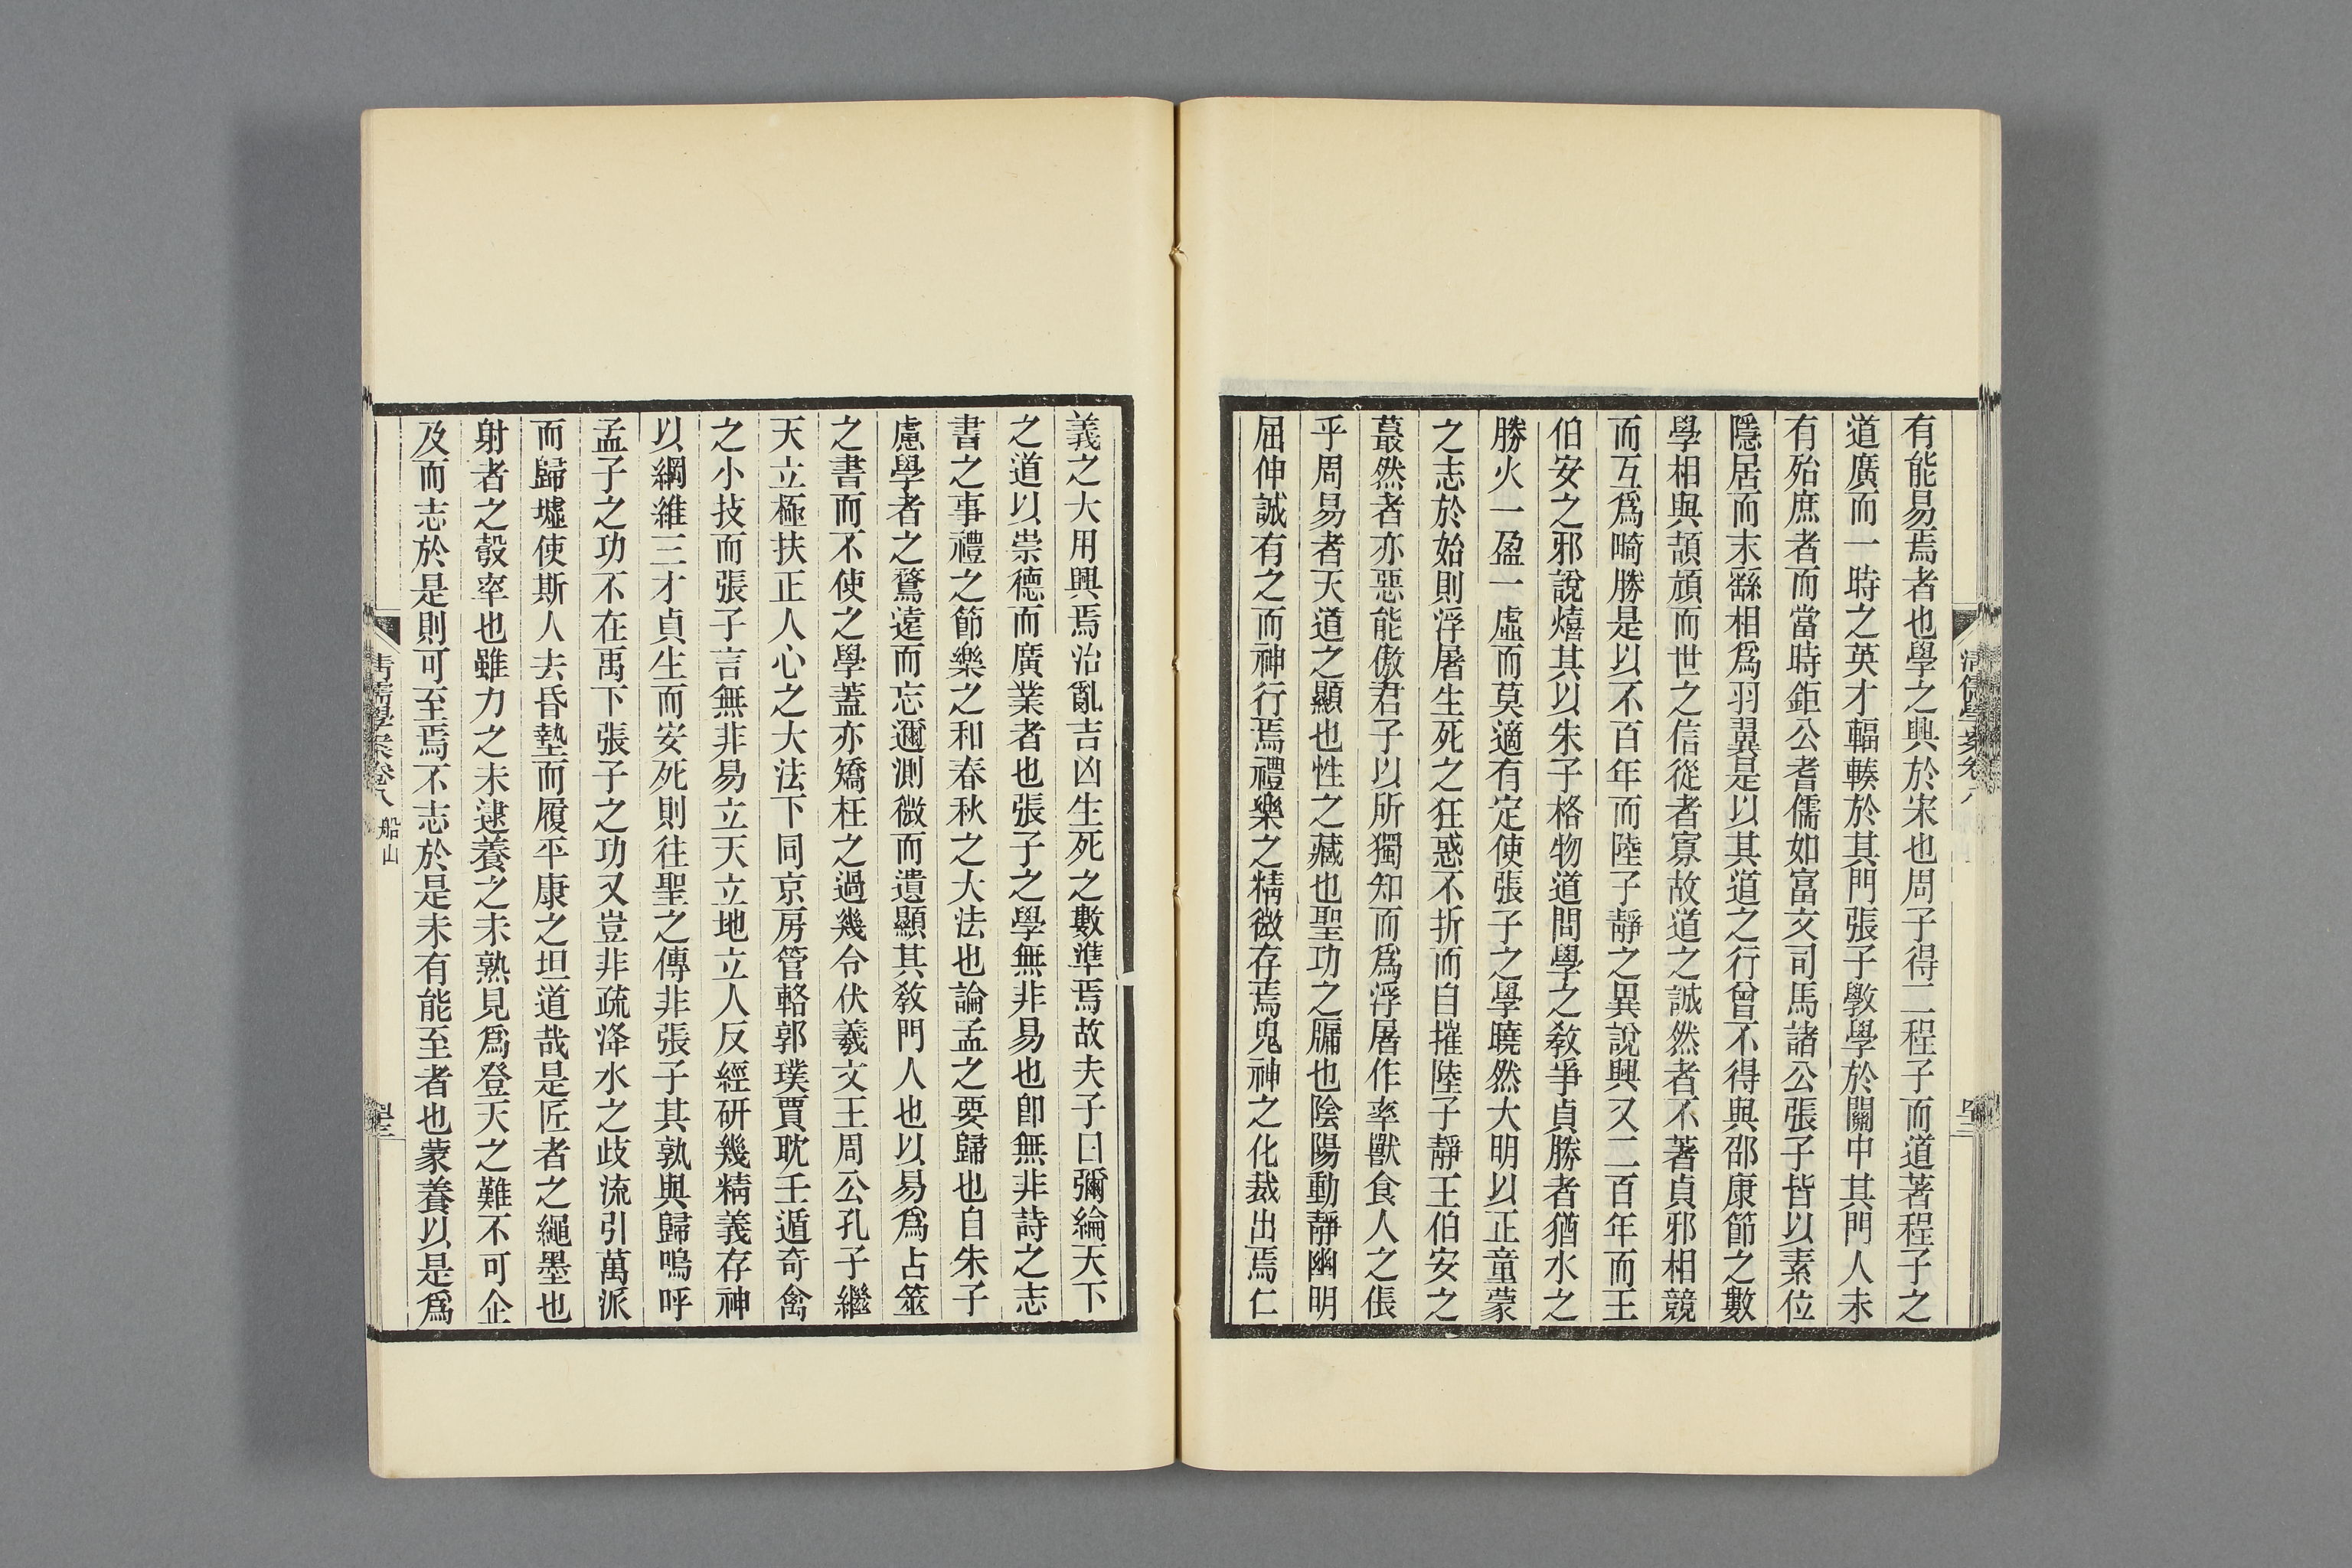 有能易焉者也學之興於宋也周子得二程子而道著程子之
道廣而一時之英才輻輳於其門張子斆學於關中其門人未
有殆庶者而當時鉅公耆儒如富文司馬諸公張子皆以素位
隱居而末繇相爲羽翼是以其道之行曾不得與邵康節之數
學相與頡頏而世之信從者寡故道之誠然者不著貞邪相競
而互爲畸勝是以不百年而陸子靜之異說興又二百年而王
伯安之邪說熺其以朱子格物道問學之敎爭貞勝者猶水之
勝火一盈一虛而莫適有定使張子之學曉然大明以正童蒙
之志於始則浮屠生死之狂惑不折而自摧陸子靜王伯安之
蕞然者亦惡能傲君子以所獨知而爲浮屠作率獸食人之倀
乎周易者天道之顯也性之藏也聖功之牖也陰陽動靜幽明
屈伸誠有之而神行焉禮樂之精微存焉鬼神之化裁出焉仁
義之大用興焉治亂吉凶生死之數準焉故夫子曰彌綸天下
之道以崇德而廣業者也張子之學無非易也卽無非詩之志
書之事禮之節樂之和春秋之大法也論孟之要歸也自朱子
慮學者之騖遠而忘邇測微而遺顯其敎門人也以易爲占筮
之書而不使之學蓋亦矯枉之過幾令伏羲文王周公孔子繼
天立極扶正人心之大法下同京房管輅郭璞賈耽壬遁奇禽
之小技而張子言無非易立天立地立人反經研幾精義存神
以綱維三才貞生而安死則往聖之傳非張子其孰與歸嗚呼
孟子之功不在禹下張子之功又豈非疏洚水之歧流引萬派
而歸墟使斯人去昏墊而履平康之坦道哉是匠者之繩墨也
射者之彀率也雖力之未逮養之未熟見爲登天之難不可企
及而志於是則可至焉不志於是未有能至者也蒙養以是爲
清儒學案卷八 船山